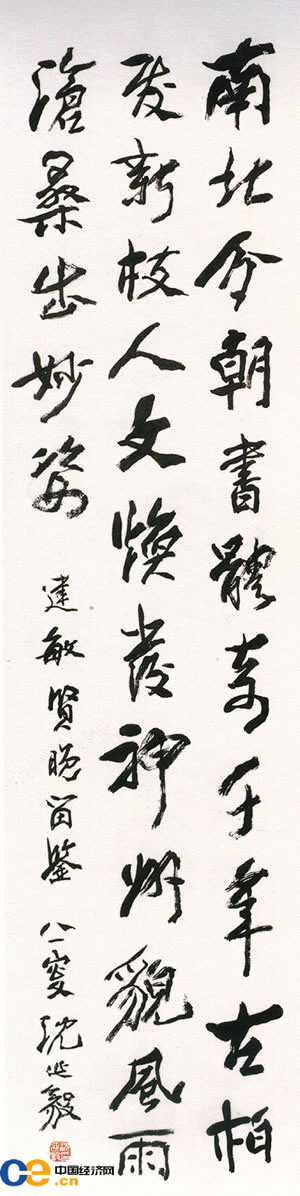 南北今朝書體奇千年古柏
发新枝人文焕發神州貌風雨
滄桑出妙姿 建敏賢晚留鑒 八一叟沈延毅
ce 中国经济网
.cn